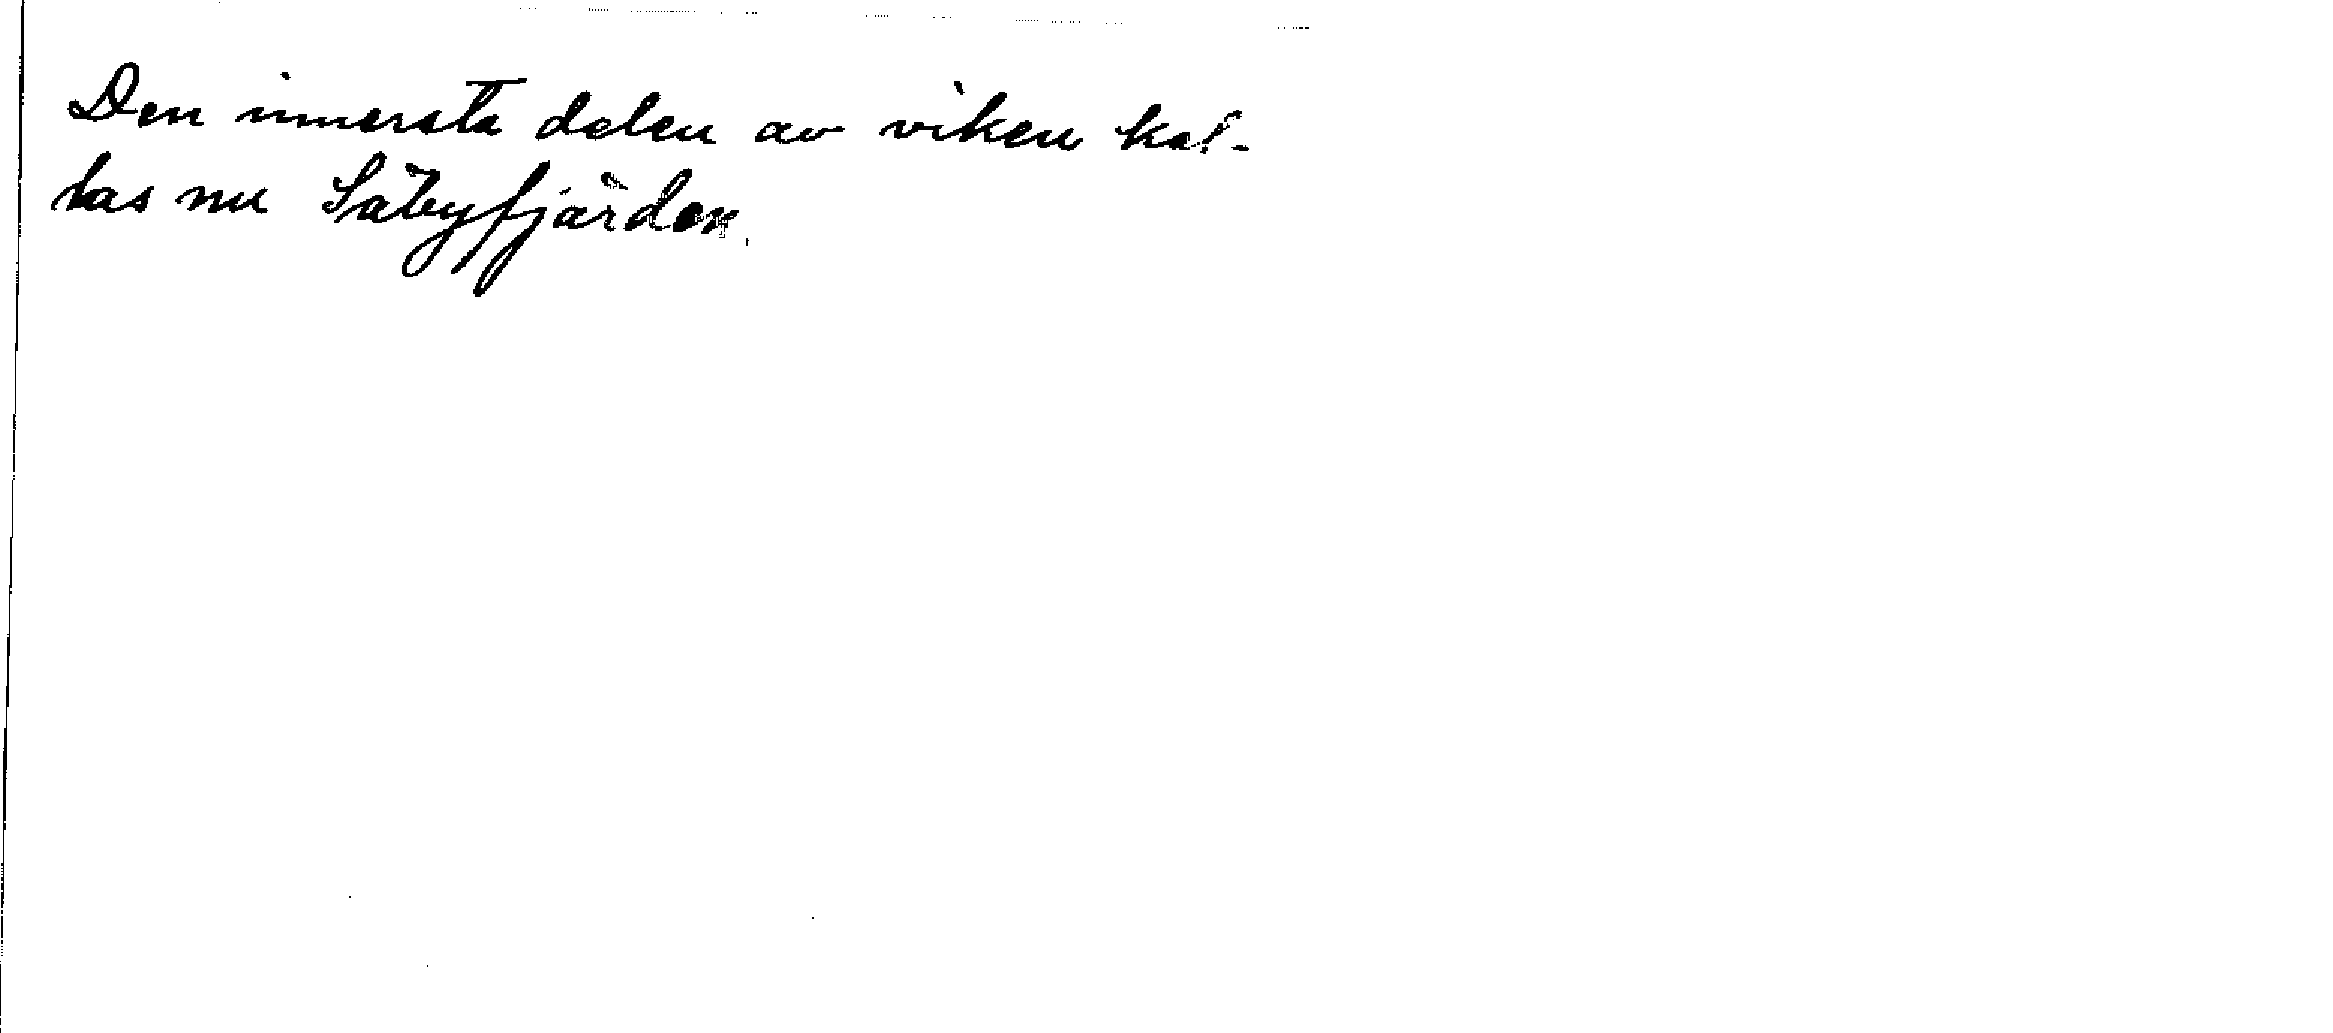 Den innersta delen av viken kal-
las nu Säbyfjärden.